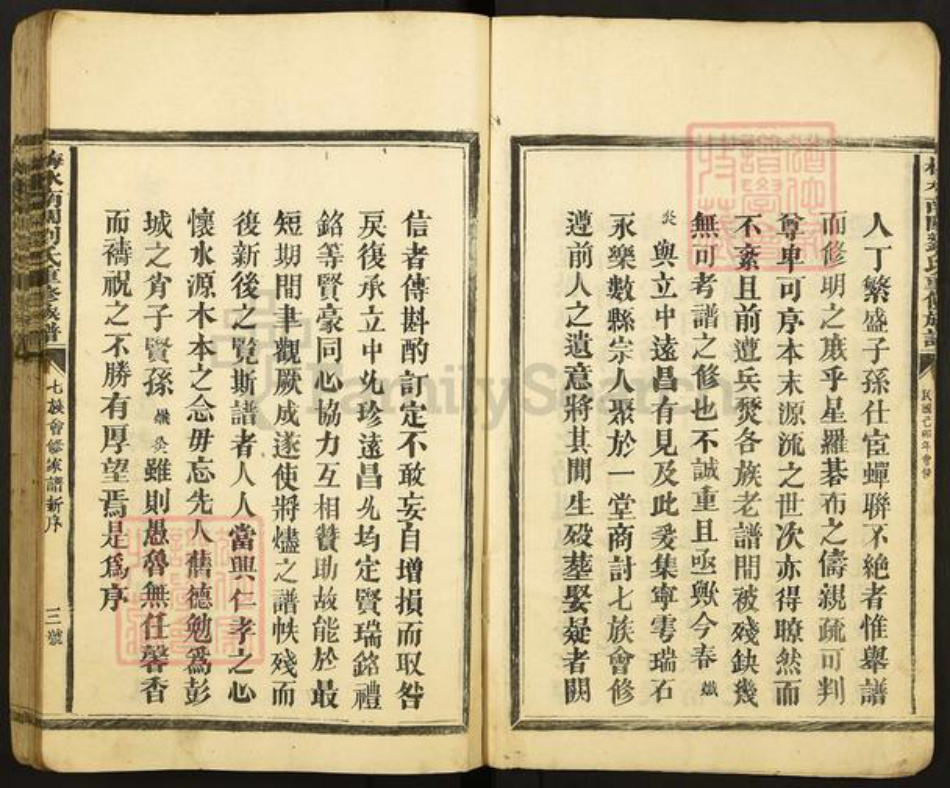 梅水南關劉氏重修族譜
民國己卯年會修
人丁繁盛子孫仕宦蟬聯不絶者惟舉譜
而修明之庶乎星羅碁布之儔親疏可判
尊卑可序本末源流之世次亦得瞭然而
不紊且前遭兵燹各族老譜間被殘缺幾
無可考譜之修也不誠重且亟歟今春 孅
炎 與立中遠昌有見及此爰集寧雩瑞石
永樂數縣宗人聚於一堂商討七族會修
遵前人之遺意將其間生歿塟娶疑者闕
信者傳斟酌訂定不敢妄自增損而取咎
戾復承立中 珍遠昌 均定賢瑞銘禮
銘等賢豪同心協力互相贊助故能於最
短期間聿觀厥成遂使將燼之譜帙殘而
復新後之覽斯譜者人人當興仁孝之心
懷水源木本之念毋忘先人舊德勉為彭
城之肖子賢孫 孅炎 雖則愚魯無任馨香
而禱祝之不勝有厚望焉是為序
梅水南關劉氏重修族譜
七族會修家譜新序
三號
FamilySearch